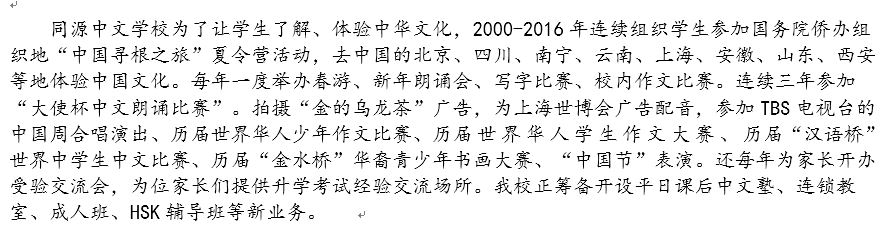 同源中文学校为了让学生了解、体验中华文化，2000-2016年连续组织学生参加国务院侨办组
织地“中国寻根之旅”夏令营活动，去中国的北京、四川、南宁、云南、上海、安徽、山东、西安
等地体验中国文化。每年一度举办春游、新年朗诵会、写字比赛、校内作文比赛。连续三年参加
“大使杯中文朗诵比赛”。拍摄“金的乌龙茶”广告，为上海世博会广告配音，参加TBS电视台的
中国周合唱演出、历届世界华人少年作文比赛、历届世界华人学生作文大赛、历届“汉语桥”
世界中学生中文比赛、历届“金水桥”华裔青少年书画大赛、“中国节”表演。还每年为家长开办
受验交流会，为位家长们提供升学考试经验交流场所。我校正筹备开设平日课后中文塾、连锁教
室、成人班、HSK辅导班等新业务。